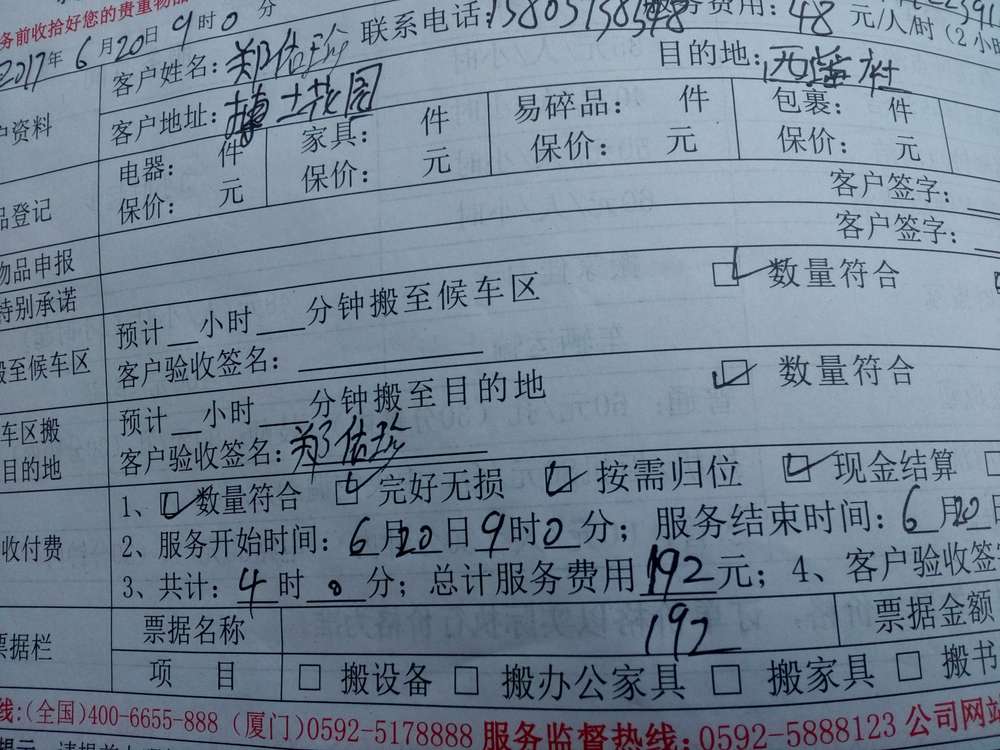 务前收拾好您的贵重物品
2017年6月20日9时0分
联系电话:
服务费用:48元/人/时(2小时
客户姓名:郑佑珍
目的地:
户资料
客户地址:博士花园
电器: 件 家具: 件 易碎品: 件 包裹: 件
品登记
保价: 元 保价: 元 保价: 元 保价: 元
客户签字:
物品申报
客户签字:
特别承诺
预计__小时___分钟搬至候车区
数量符合
搬至候车区
客户验收签名:
预计__小时___分钟搬至目的地
数量符合
车区搬
目的地
客户验收签名:郑佑珍
1、数量符合 完好无损 按需归位 现金结算
收付费
2、服务开始时间:6月20日9时0分;服务结束时间:6月20日
3、共计:4时0分;总计服务费用192元;4、客户验收签字
票据栏
票据名称 192 票据金额
项 目 搬设备 搬办公家具 搬家具 搬书
线:(全国)400-6655-888 (厦门)0592-5178888 服务监督热线:0592-5888123 公司网站